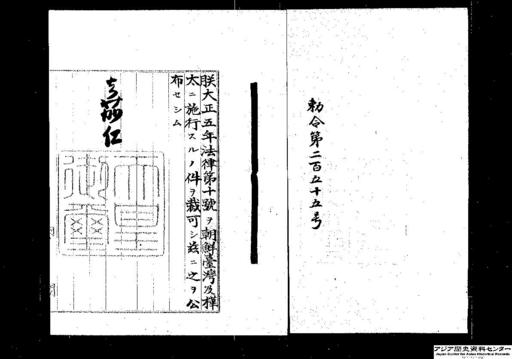 勅令第二百五十五号
朕大正五年法律第十號ヲ朝鮮臺灣及樺
太ニ施行スルノ件ヲ裁可シ茲ニ之ヲ公
布セシム
嘉仁
天皇
御璽
アジア歴史資料センター
Japan Center for Asian Historical Records